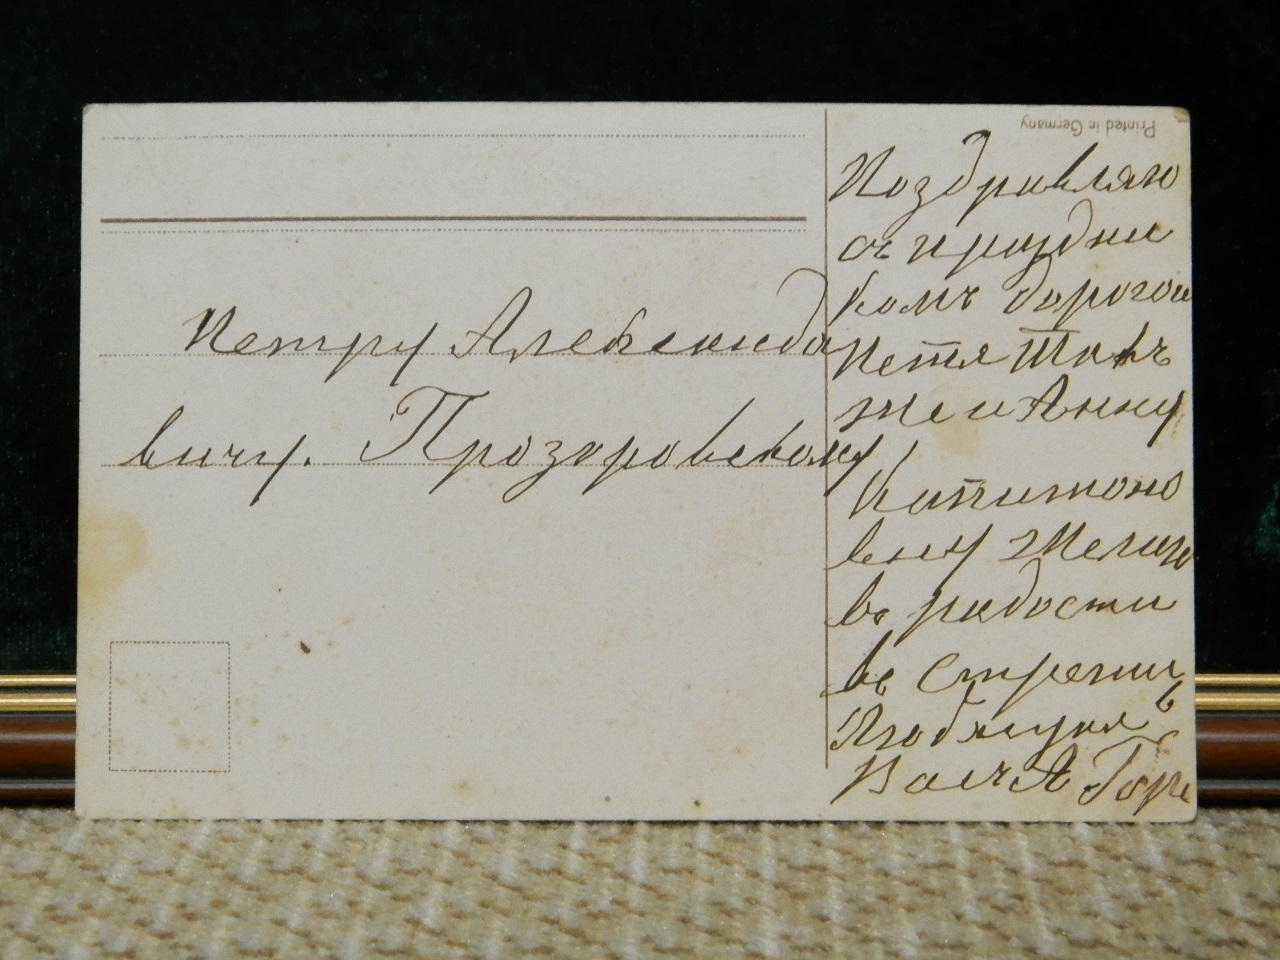 Printed in Germany
Петру Александро
вичу. Прозоровскому
Поздравляю
съ праздни
комъ дорогой
Петя Такъ
же и Анну
Капитоно
вну Желаю
въ радости
въ стретить
Любящая
Васъ А